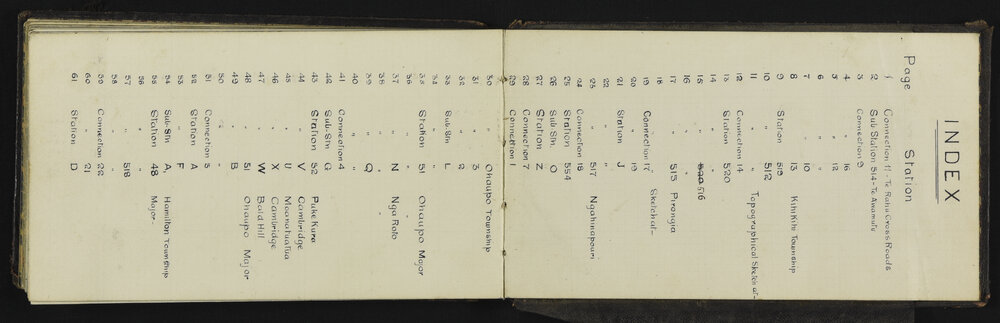 INDEX
Page Station
1 Connection 11 - Te Rahu Cross Roads
2 Sub Station 514 - Te Awamutu
3 Connection 9
4 " 16
5 " 12
6 "
7 " 10
8 " 13 Kihi Kihi Township
9 Station 513
10 " 512
11 " Topographical Sketch at-
12 Connection 14
13 Station 520
14 "
15 " 516
16 "
17 " 515 Pirongia
18 Sketch at-
19 Connection 17
20 " 19
21 Station J
22 "
23 " 517 Ngahinapouri
24 Connection 18
25 Station 554
26 Sub Stn O
27 Station Z
28 Connection 7
29 Connection 1
30 " Ohaupo Township
31 " 3
32 " 2
33 Sub Stn L
34 "
35 Station 51 Ohaupo Major
36 "
37 " N Nga Roto
38 "
39 " Q
40 "
41 Connection 4
42 Sub-Stn Q
43 Station 52 Puke Kura
44 " V Cambridge
45 " U Maanatuatua
46 " X Cambridge
47 " W Bald Hill
48 " 51 Ohaupo Major
49 " B
50 "
51 Connection 5
52 Station A
53 " F
54 Sub-Stn A, Hamilton Township
55 Station 48 Major
56 "
57 " 518
58 "
59 Connection 22
60 " 21
61 Station D